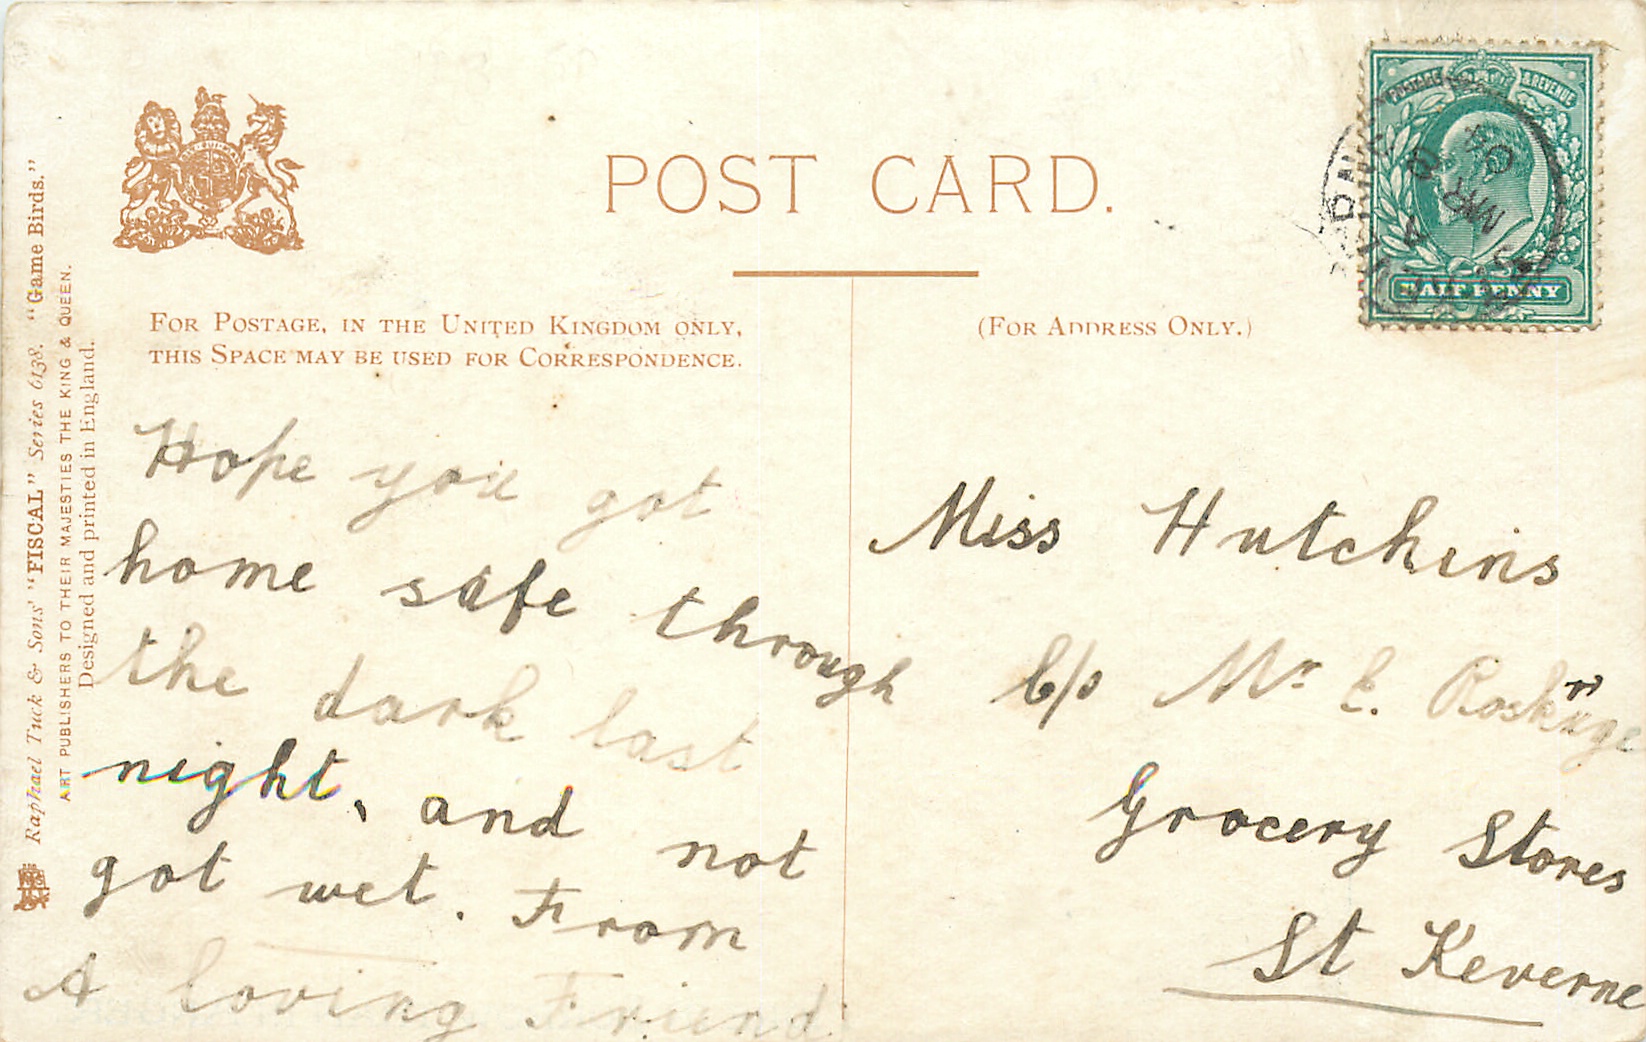 POST CARD.
FOR POSTAGE, IN THE UNITED KINGDOM ONLY,
THIS SPACE MAY BE USED FOR CORRESPONDENCE.
(FOR ADDRESS ONLY.)
POSTAGE & REVENUE
HALF PENNY
MR
04
Raphael Tuck & Sons' "FISCAL" Series 6138. "Game Birds."
ART PUBLISHERS TO THEIR MAJESTIES THE KING & QUEEN.
Designed and printed in England.
Hope you got
home safe through
the dark last
night, and not
got wet. From
A loving Friend
Miss Hutchins
C/o Mr E.
Grocery Stores
St Keverne